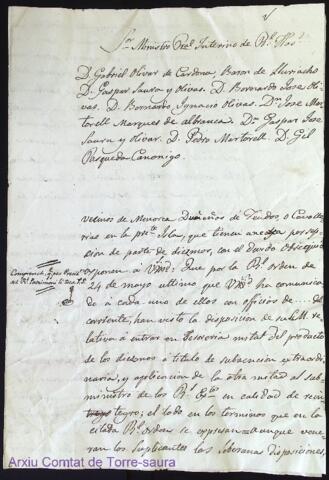 Sor. Ministro Pral. Interino de Rl. Hazda.
D. Gabriel Olivar de Cardona, Baron de Lluriacho
D. Gaspar Saura y Olivas. D. Bernardo Jose Oli-
vas. D. Bernardo Ignacio Olivas. Dn. Jose Mar-
torell Marques de albranca. Dn. Gaspar Jose
Saura y Olivar. D. Pedro Martorell. D. Gil
Parpuda Canonigo.
Vecinos de Menorca Dueños de Feudos, o Cavalle-
rias en la pnte. Isla, que tienen anexa por
cion de parte de diezmos, con el devido Obsequio
exponen à V. Que por la Rl. orden de
24 de mayo ultimo que V. ha comunica-
do à cada uno de ellos con oficios de ....... del
corriente, han visto la disposicion de S.M. re-
lativo à entrar en Tesoreria mitad del producto
de los diezmos a titulo de subvencion extraordi-
naria, y aplicacion de la otra mitad al sub-
ministro de los Rs. Extos. en calidad de rein-
tegro; el todo en los terminos que en la
citada Rl. Orden se expresan = aunque vene-
ran los Suplicantes las Soberanas disposiciones,
Arxiu Comtat de Torre-saura